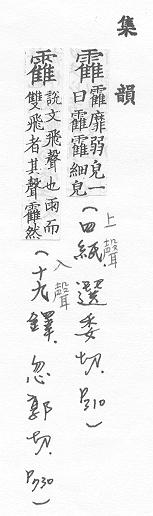 集韻
靃
靃靡弱皃一
曰靃靃細皃
(四紙.選委切.P310)
上聲
靃
說文飛聲也雨而
雙飛者其聲靃然
(十九鐸.忽郭切.P730)
入聲